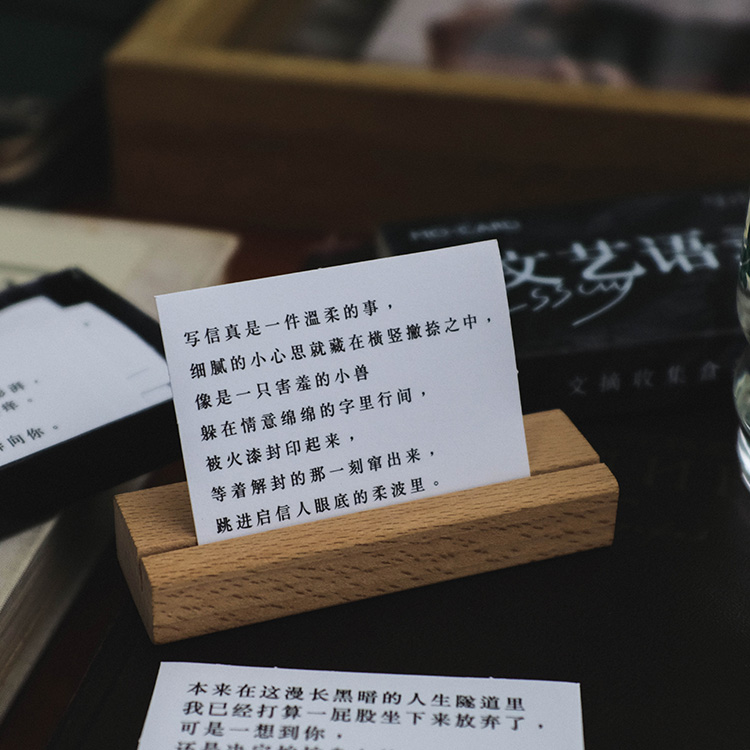 MO·CARD
文艺语
文摘收集盒
写信真是一件溫柔的事，
细腻的小心思就藏在横竖撇捺之中，
像是一只害羞的小兽
躲在情意绵绵的字里行间，
被火漆封印起来，
等着解封的那一刻窜出来，
跳进启信人眼底的柔波里。
向你。
本来在这漫长黑暗的人生隧道里
我已经打算一屁股坐下来放弃了，
可是一想到你，
还是决定